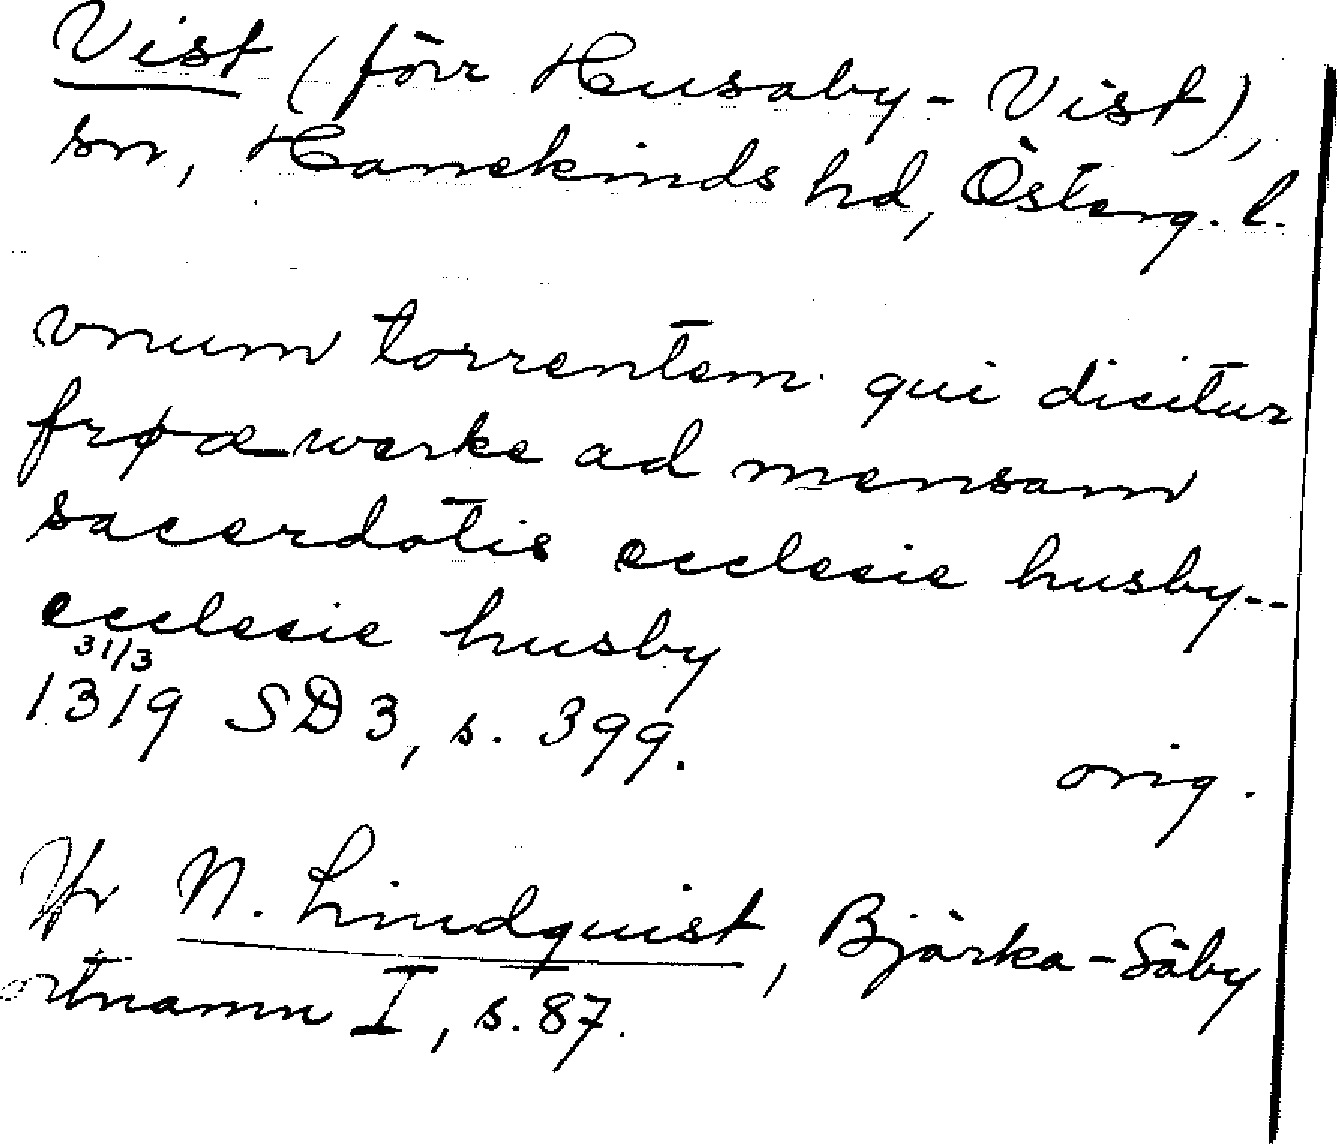 Vist (förr Husaby-Vist),
sn, Hanekinds hd, Österg. l.
vnum torrentem qui dicitur
frøæwerke ad mensam
sacerdotis ecclesie husby--
ecclesie husby
31/3
1319 SD 3, s. 399.
orig.
Ur N. Lindquist, Bjärka-Säby
ortnamn I, s. 87.